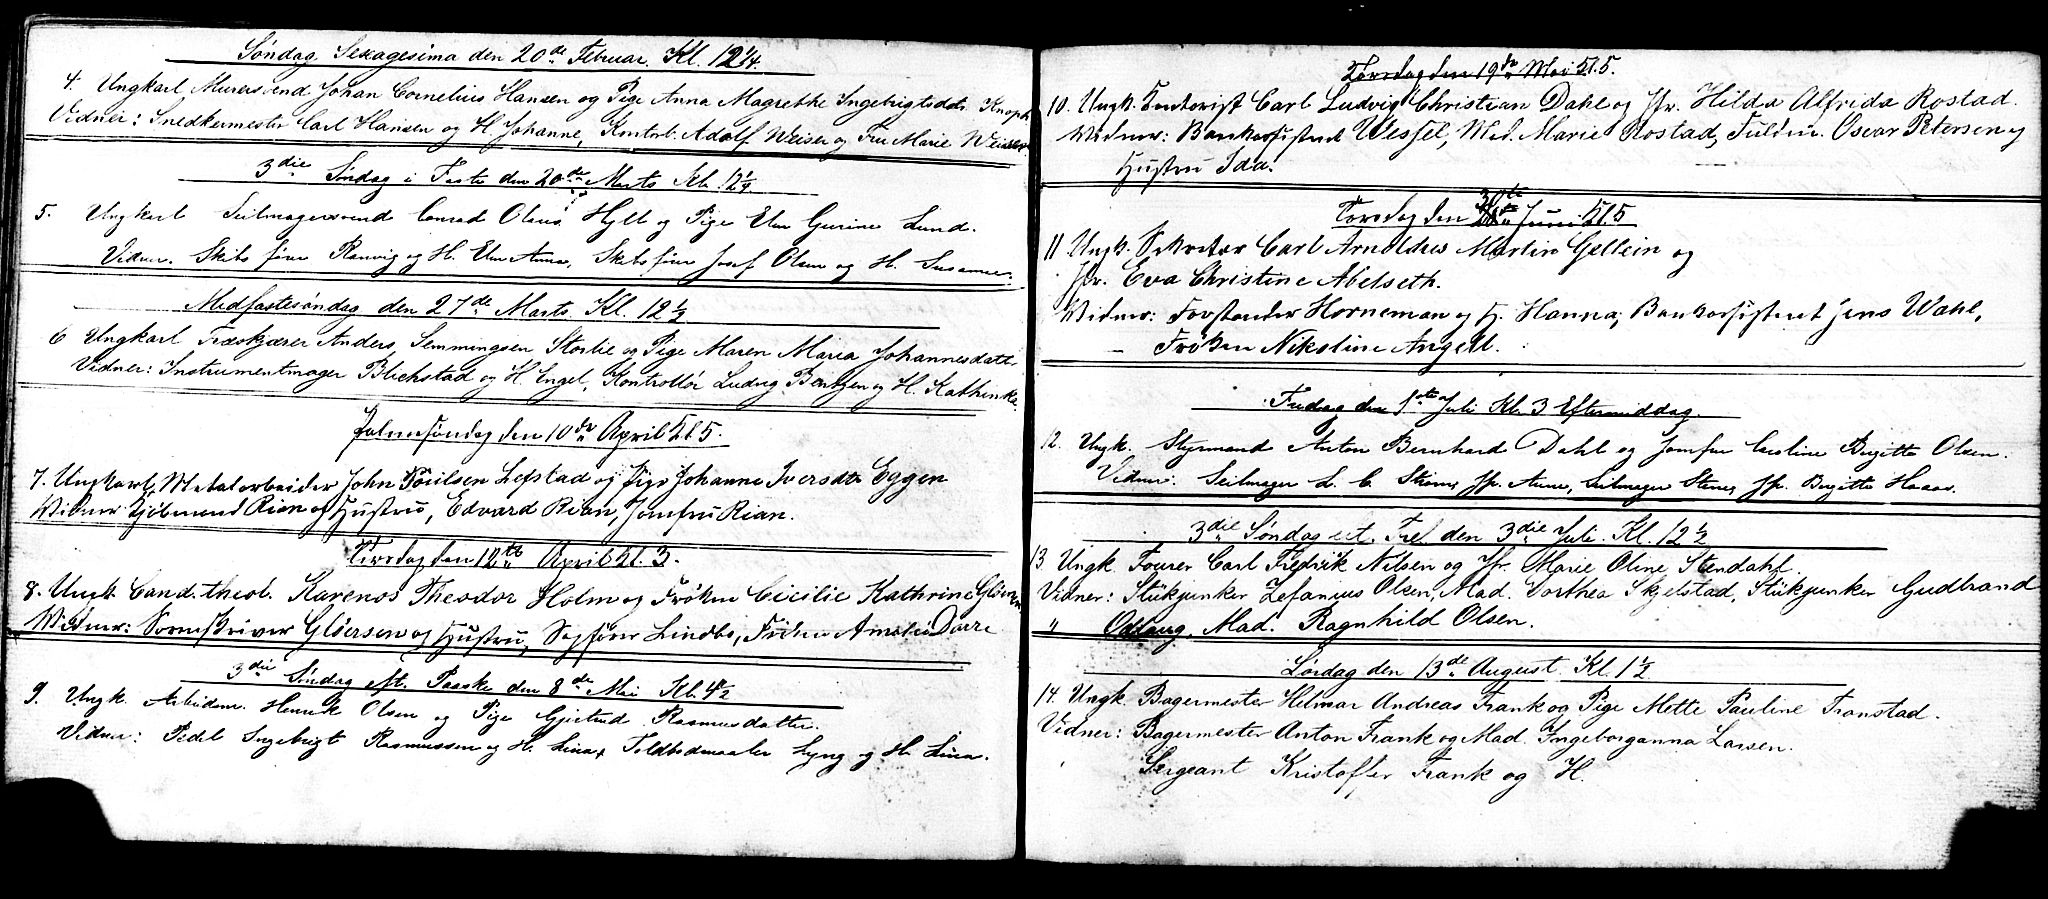 Søndag Sexagesima den 20de Februar Kl. 12 1/4.
4. Ungkarl Murersvend Johan Cornelius Hansen og Pige Anna Magrethe Ingebrigtsdtr Knoph
Vidner: Snedkermester Carl Hansen og H. Johanne, Kontrl. Adolf Weisen og Fru Marie Weisen
3die Søndag i Faste den 20de Marts Kl. 12 1/4
5. Ungkarl Seilmagersvend Conrad Olaus Hyll og Pige Elen Gurine Lund.
Vidner. Skibsfører Ranvig og H. Elen Anna, Skibsfører Josef Olsen og H. Susanne.
Midfastesøndag den 27de Marts Kl. 12 1/2
6 Ungkarl Træskjærer Anders Semmingsen Storlie og Pige Maren Maria Johannesdatt.
Vidner: Instrumentmager Blichstad og H. Engel, Kontrollør Ludvig Berntzen og H. Kathinka.
Palmesøndag den 10de April Kl. 5.
7. Ungkarl, Metalarbeider John Lefstad og Pige Johanna Iversdtr Eggen
Vidner Kjøbmand Rian og Hustru, Edvard Rian, Jomfru Rian.
Tirsdag den 12te April Kl. 3.
8. Ungk. Cand. theol. Karenos Theodor Holm og Frøken Cicilie Kathrine Gløersen
Vidner: Sorenskriver Gløersen og Hustru, Sagfører Lindbo, Frøken Amalie Darre
3die Søndag eft. Paaske den 8de Mai Kl. 4 1/2
9. Ungk. Arbeidsm. Henrik Olsen og Pige Gjertrud Rasmusdatter.
Vidner: Pedel Ingebrigt Rasmussen og H. Lina, Toldbodmaaler Lyng og H. Lina.
Torsdag den 19de Mai Kl. 5.
10. Ungk. Kontorist Carl Ludvig Christian Dahl og Jfr. Hilda Alfrida Rostad.
Vidner: Bankassistent Wessel, Mad. Marie Rostad, Fuldm. Oscar Petersen og
Hustru Ida.
Torsdag den 30te Juni Kl. 5
11. Ungk. Sekretær Carl Arnoldus Martin Gellein og
Jfr. Eva Christine Abelseth.
Vidner: Forstander Horneman og H. Hanna, Bankassistent Jens Wahl,
Frøken Nikoline Angell.
Fredag den 1ste Juli Kl. 3 Eftermiddag.
12. Ungk. Styrmand Anton Bernhard Dahl og Jomfru Caroline Birgitte Olsen.
Vidner: Seilmager L. C. Strøm, Jfr. Anne, Seilmager Stene, Jfr. Birgitte Haar.
3die Søndag eft. Tref. den 3die Juli Kl. 12 1/2
13 Ungk. Fourer Carl Fredrik Nilsen og Jfr. Marie Oline Stendahl.
Vidner: Stükjunker Zefanius Olsen, Mad. Dorthea Skjelstad, Stükjunker Gudbrand
" Odlaug, Mad. Ragnhild Olsen.
Lørdag den 13de August Kl. 1 1/2
14. Ungk. Bagermester Helmar Andreas Frank og Pige Mette Pauline Tronstad.
Vidner: Bagermester Anton Frank og Mad. Ingeborganna Larsen.
Sergeant Kristoffer Frank og H.